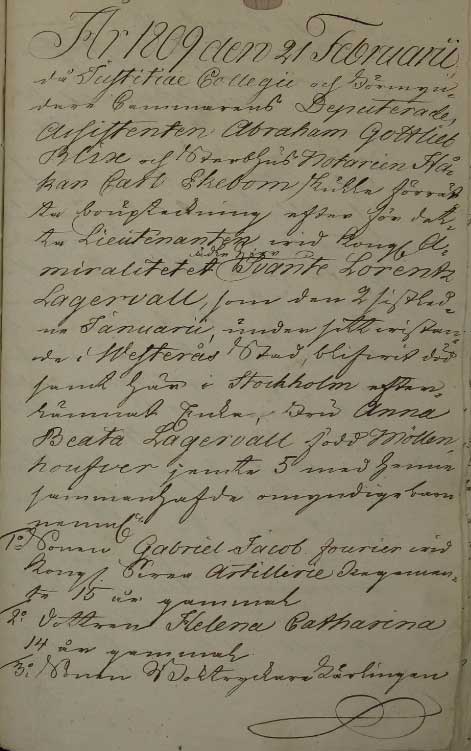 År 1809 den 21 Februarii,
då Justitiae Collegii och Förmyn-
dare Cammarens Deputerade,
Assistenten Abraham Gottlieb
Blix och Sterbhus Notarien Hå-
kan Carl Ekebom skulle förrät-
ta bouptekning efter för det-
ta Lieutenanten wid Kongl. A-
miralitetet ädle herr Svante Lorentz
Lagervall, som den 2 sistled-
ne Januarii, under sitt wistan-
de i Westerås Stad, blifvit död
samt här i Stockholm efter-
lämnat Enka, Fru Anna
Beata Lagervall född Möllen-
houfver jemte 5 med henne
sammanhafde omyndige barn
neml.
1:o Sonen Gabriel Jacob, furier wid
Kongl. Svea Artillerie Regemen-
te 15 år gammal
2:o Dottren Helena Catharina
14 år gammal
3:o Sonen Boktryckare Lärlingen